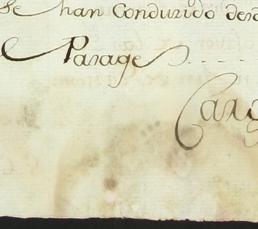 Se han Condurido desd
e Parage . . . .
Carg